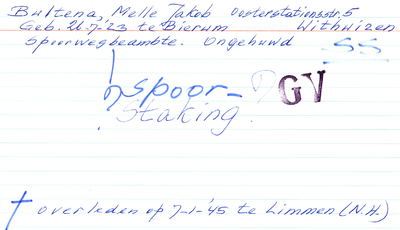 Bultena, Melle Jakob Oosterstationsstr. 5
Geb. 26.7.23 te Bierum Withuizen
Spoorwegbeambte. Ongehuwd
SS
? spoor- ? GV
Staking.
† overleden op 7-1-'45 te Limmen (N.H.)